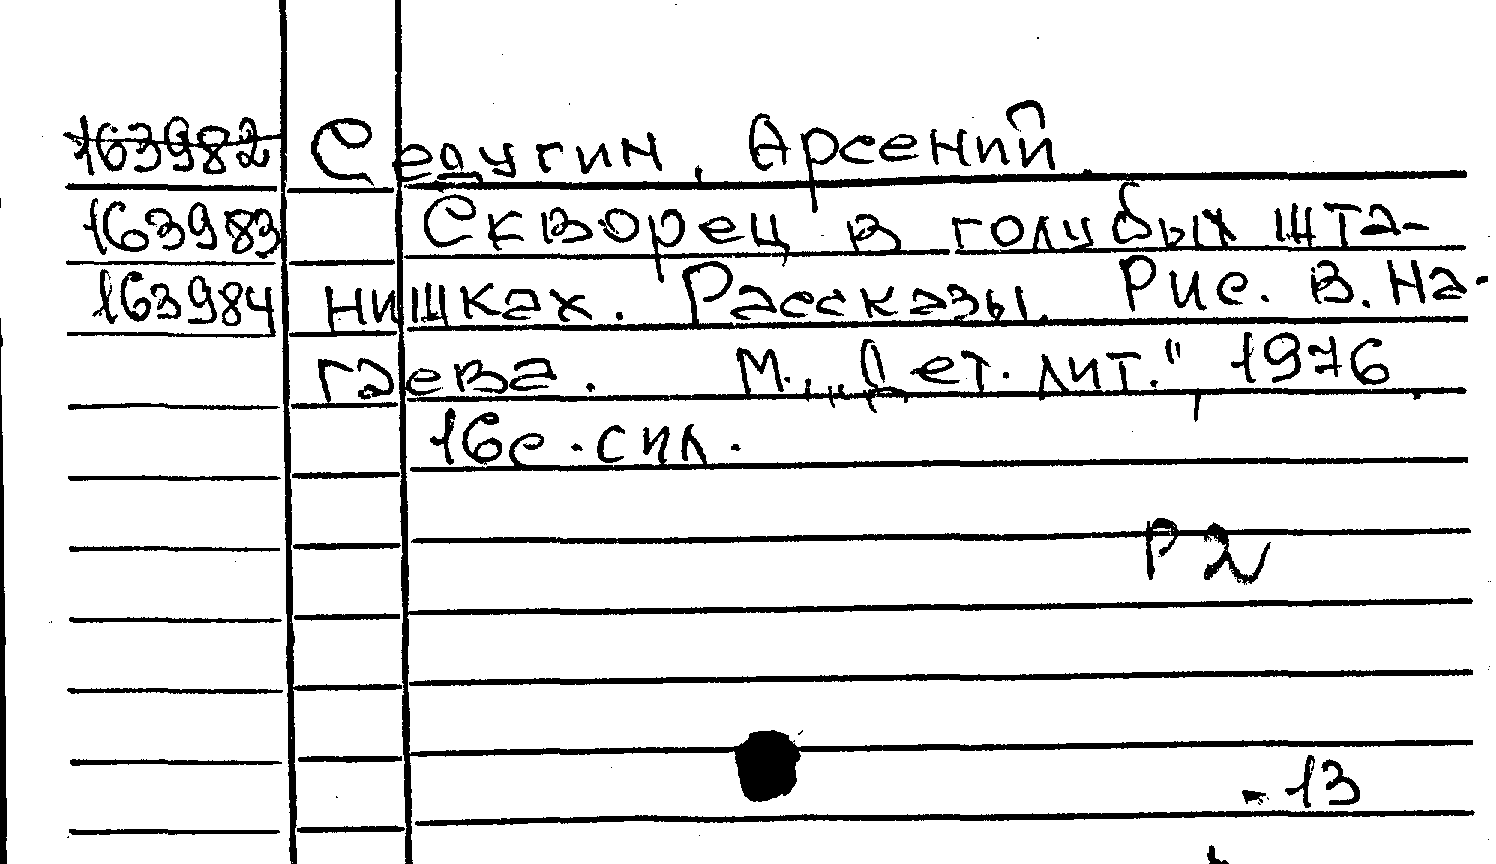 163982 Седугин, Арсений.
163983 Скворец в голубых шта-
163984 нишках. Рассказы. Рис. В. На-
гаева. М., „Дет. лит.", 1976.
16с. с ил.
Р2
-13